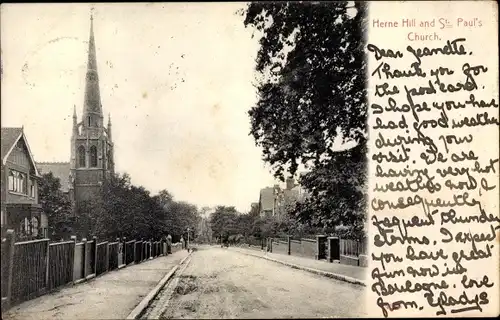 Herne Hill and St. Paul's
Church.
Dear Jeanette.
Thank you for
the post card.
I hope you have
had good weather
during your
visit. We are
having very hot
weather now &
consequently
frequent thunder
storms. I expect
you have great
fun now in
love
from, Gladys